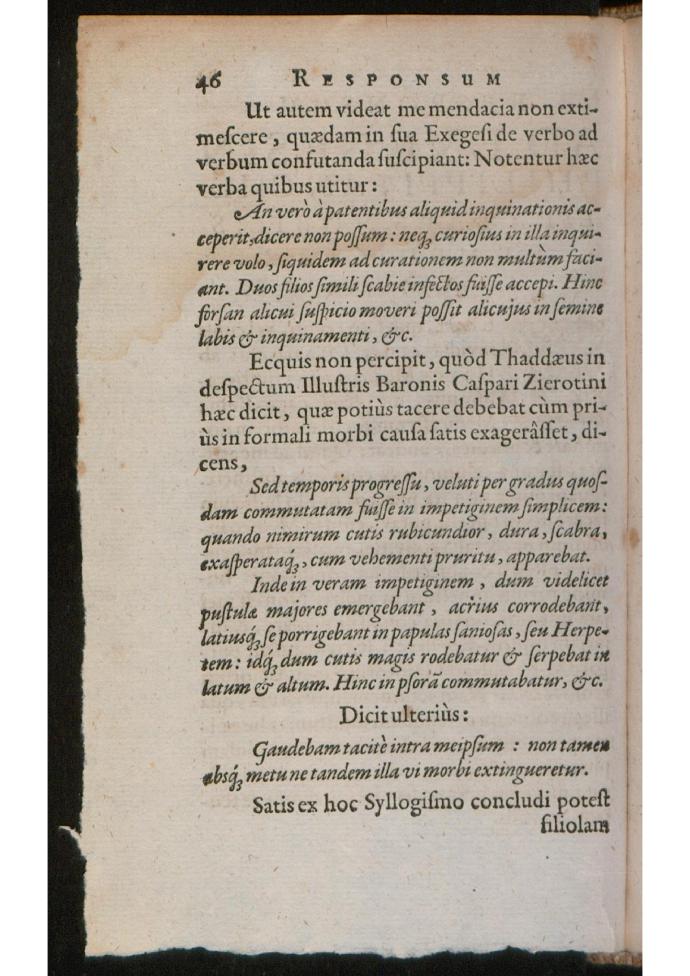 46 RESPONSUM
Ut autem videat me mendacia non exti-
meſcere, quædam in ſua Exegeſi de verbo ad
verbum confutanda ſuſcipiant: Notentur hæc
verba quibus utitur:
An verò à patentibus aliquid inquinationis ac-
ceperit, dicere non poſſum: neq́ꝫ curioſius in illa inqui-
rere volo, ſiquidem ad curationem non multùm faci-
ant. Duos filios ſimili ſcabie infectos fuiſſe accepi. Hinc
forſan alicui ſuſpicio moveri poſſit alicujus in ſemine
labis & inquinamenti, &c.
Ecquis non percipit, quòd Thaddæus in
deſpectum Illuſtris Baronis Caſpari Zierotini
hæc dicit, quæ potiùs tacere debebat cùm pri-
ùs in formali morbi cauſa ſatis exagerâſſet, di-
cens,
Sed temporis progreſſu, veluti per gradus quoſ-
dam commutatam fuiſſe in impetiginem ſimplicem:
quando nimirum cutis rubicundior, dura, ſcabra,
exaſperataq́ꝫ, cum vehementi pruritu, apparebat.
Inde in veram impetiginem, dum videlicet
puſtulæ majores emergebant, acriùs corrodebant,
latiusq́ꝫ ſe porrigebant in papulas ſanioſas, ſeu Herpe-
tem: idq́ꝫ dum cutis magis rodebatur & ſerpebat in
latum & altum. Hinc in pſorã commutabatur, &c.
Dicit ulteriùs:
Gaudebam tacitè intra meipſum : non tamen
absq́ꝫ metu ne tandem illa vi morbi extingueretur.
Satis ex hoc Syllogiſmo concludi poteſt
filiolam